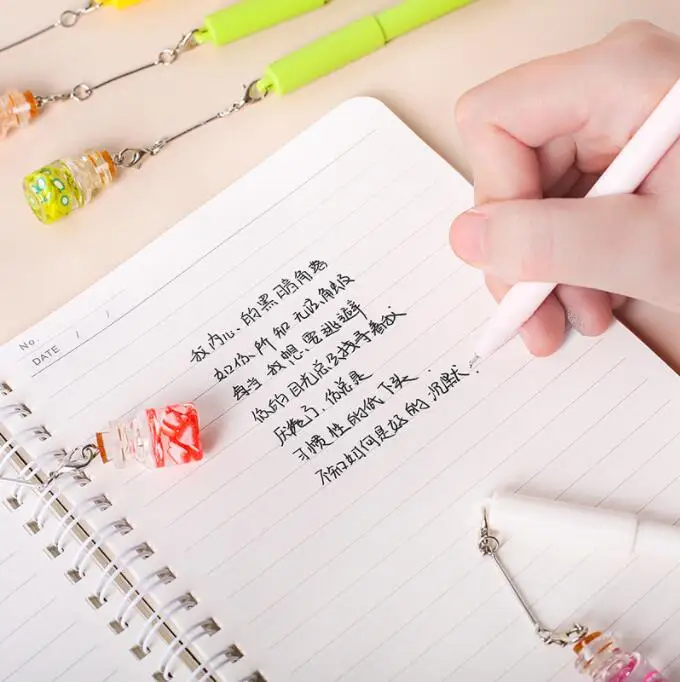 No.
DATE / /
我内心的黑暗角落
如你所知无限角级
每当我想要逃避
你的目光总会找寻着我
厌倦了，你总是
习惯性的低下头
不知如何是好的沉默.